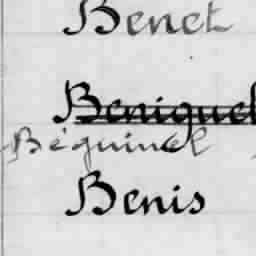 Benet
Beniguel
Béguinel
Benis